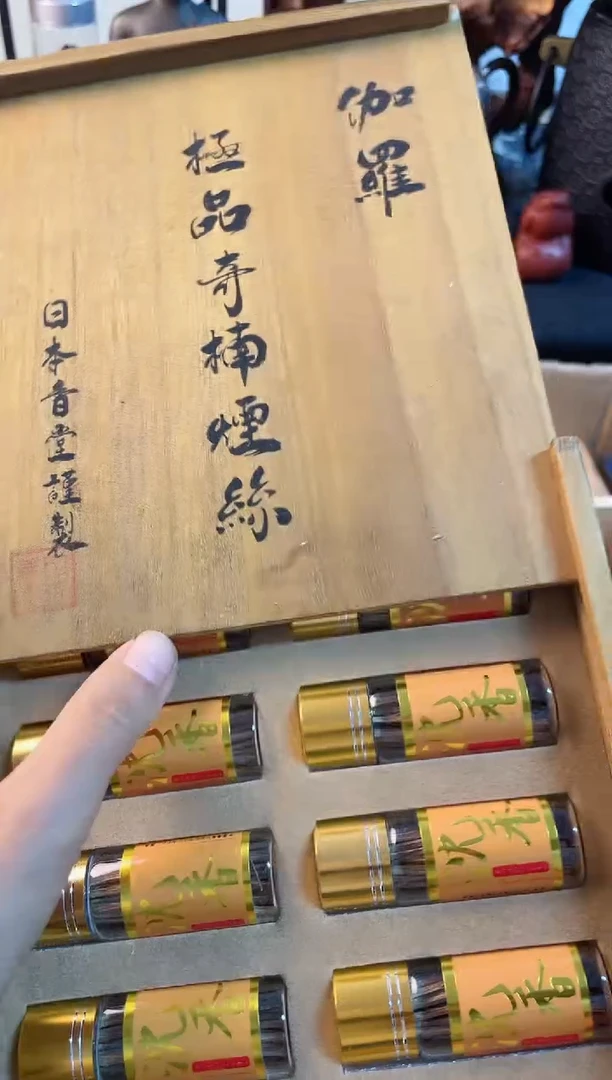 伽羅
極品奇楠煙絲
日本音堂謹製
沉香
沉香
沉香
沉香
沉香
沉香